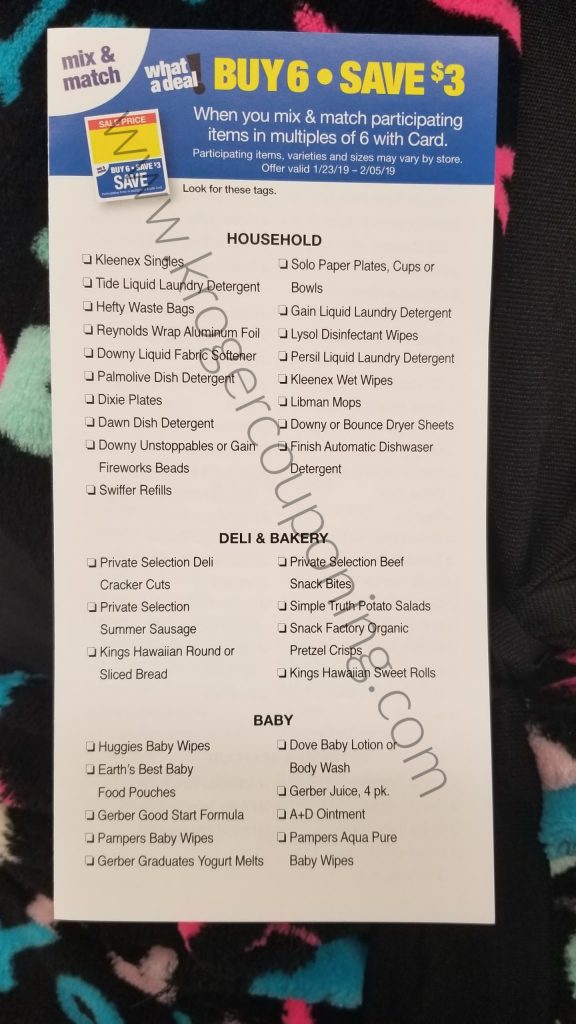 mix &
match
what
a deal!
BUY 6 • SAVE $3
When you mix & match participating
items in multiples of 6 with Card.
Participating items, varieties and sizes may vary by store.
Offer valid 1/23/19 – 2/05/19
SALE PRICE
BUY 6 • SAVE $3
SAVE
Look for these tags.
HOUSEHOLD
❏ Kleenex Singles
❏ Tide Liquid Laundry Detergent
❏ Hefty Waste Bags
❏ Reynolds Wrap Aluminum Foil
❏ Downy Liquid Fabric Softener
❏ Palmolive Dish Detergent
❏ Dixie Plates
❏ Dawn Dish Detergent
❏ Downy Unstoppables or Gain
Fireworks Beads
❏ Swiffer Refills
❏ Solo Paper Plates, Cups or
Bowls
❏ Gain Liquid Laundry Detergent
❏ Lysol Disinfectant Wipes
❏ Persil Liquid Laundry Detergent
❏ Kleenex Wet Wipes
❏ Libman Mops
❏ Downy or Bounce Dryer Sheets
❏ Finish Automatic Dishwaser
Detergent
DELI & BAKERY
❏ Private Selection Deli
Cracker Cuts
❏ Private Selection
Summer Sausage
❏ Kings Hawaiian Round or
Sliced Bread
❏ Private Selection Beef
Snack Bites
❏ Simple Truth Potato Salads
❏ Snack Factory Organic
Pretzel Crisps
❏ Kings Hawaiian Sweet Rolls
BABY
❏ Huggies Baby Wipes
❏ Earth's Best Baby
Food Pouches
❏ Gerber Good Start Formula
❏ Pampers Baby Wipes
❏ Gerber Graduates Yogurt Melts
❏ Dove Baby Lotion or
Body Wash
❏ Gerber Juice, 4 pk.
❏ A+D Ointment
❏ Pampers Aqua Pure
Baby Wipes
www.krogercouponing.com